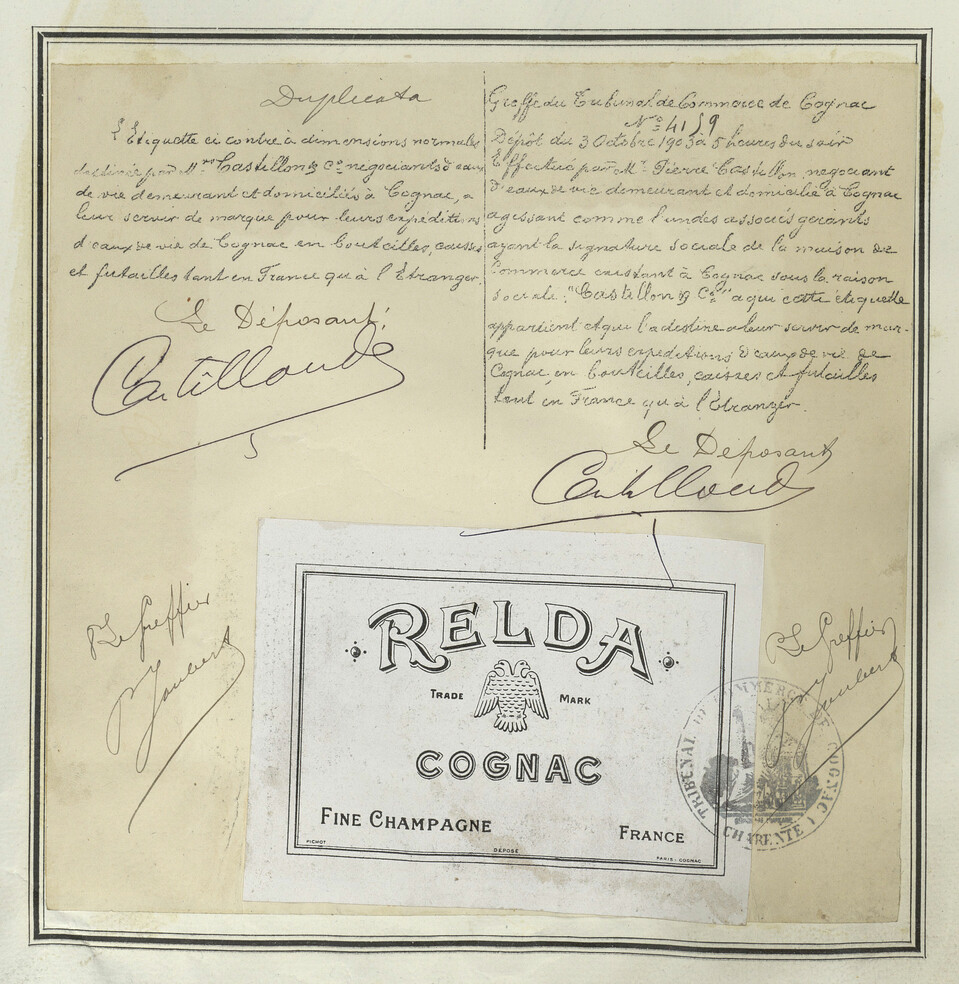 Duplicata
L'Etiquette ci contre à dimensions normales
destinée par Mrs Castillon & Co négociants d'eaux
de vie demeurant et domiciliés à Cognac, a
leur servir de marque pour leurs expéditions
d'eaux de vie de Cognac en bouteilles, caisses
et futailles tant en France qu'à l'Etranger.
Le Déposant,
Greffe du Tribunal de Commerce de Cognac
No 4159
Dépôt du 3 Octobre 1903 à 5 heures du soir
Effectué par Mr Pierre Castillon, négociant
d'eaux de vie demeurant et domicilié à Cognac
agissant comme l'un des associés gérants
ayant la signature sociale de la maison de
Commerce existant à Cognac sous la raison
sociale: "Castillon & Co" a qui cette étiquette
appartient et qui l'a destine a leur servir de mar-
que pour leurs expéditions d'eaux de vie de
Cognac, en bouteilles, caisses et futailles
tant en France qu'à l'Etranger.
Le Déposant
Le Greffier
Joubert
Le Greffier
Joubert
RELDA
TRADE MARK
COGNAC
FINE CHAMPAGNE
FRANCE
PICHOT
DÉPOSÉ
PARIS-COGNAC
TRIBUNAL DE COMMERCE DE COGNAC
CHARENTE